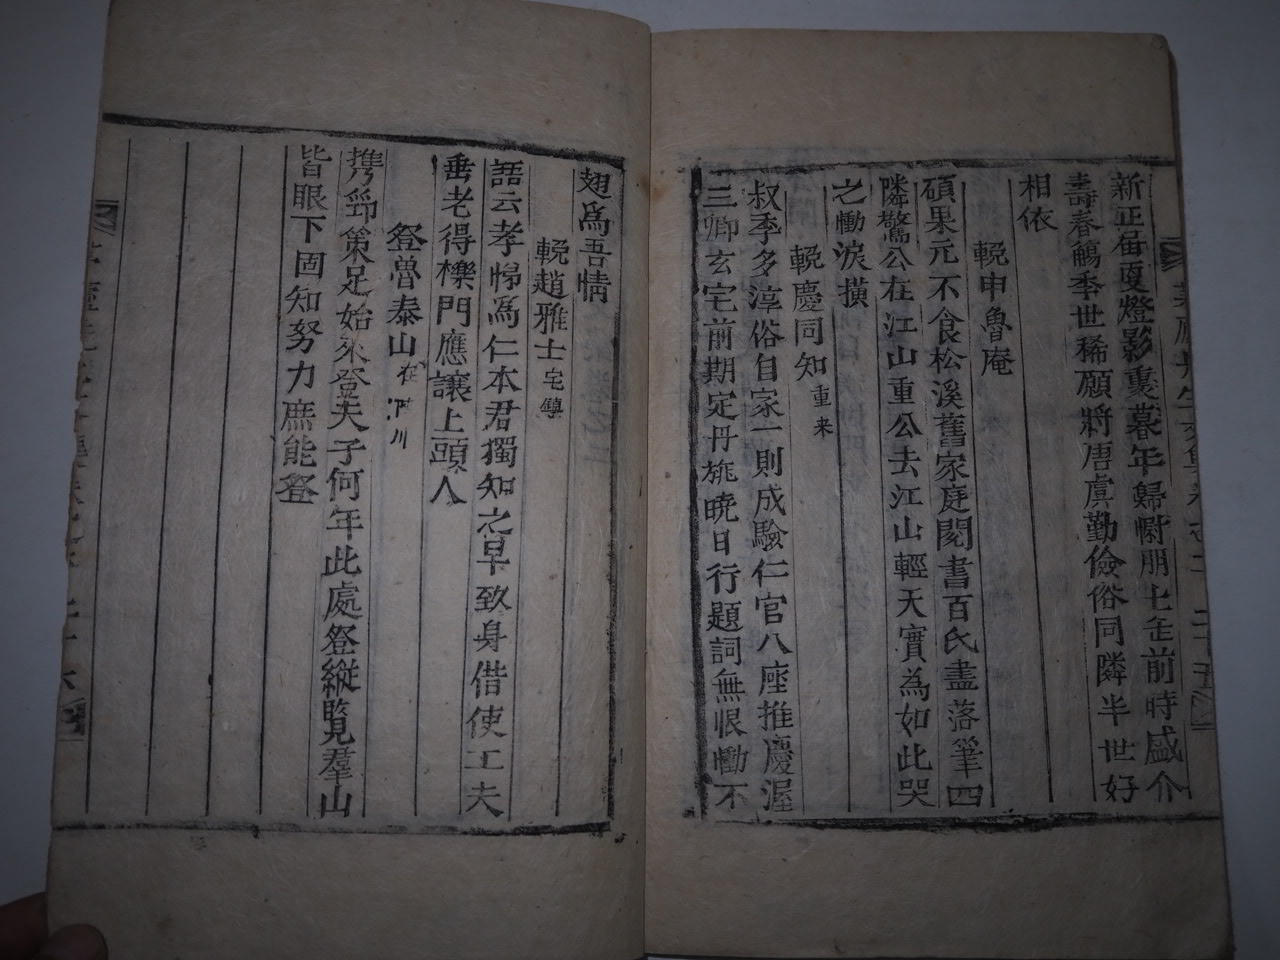 新正届夏燈影裏暮年歸㦗朋七缶前時盛介
壽春觴季世稀願將唐虞勤儉俗同隣半世好
相依
輓申魯庵
碩果元不食松溪舊家庭閱書百氏盡落筆四
隣驚公在江山重公去江山輕天實為如此哭
之慟淚橫
輓慶同知重来
叔季多漓俗自家一則成驗仁官八座推慶渥
三卿玄宅前期定丹旐曉日行題詞無恨慟不
翅爲吾情
輓趙雅士宅鎭
語云孝悌爲仁本君獨知之早致身借使工夫
垂老得櫟門應讓上頭人
登魯泰山在陜川
携笻策足始來登夫子何年此處登縱覽羣山
皆眼下固知努力庶能登